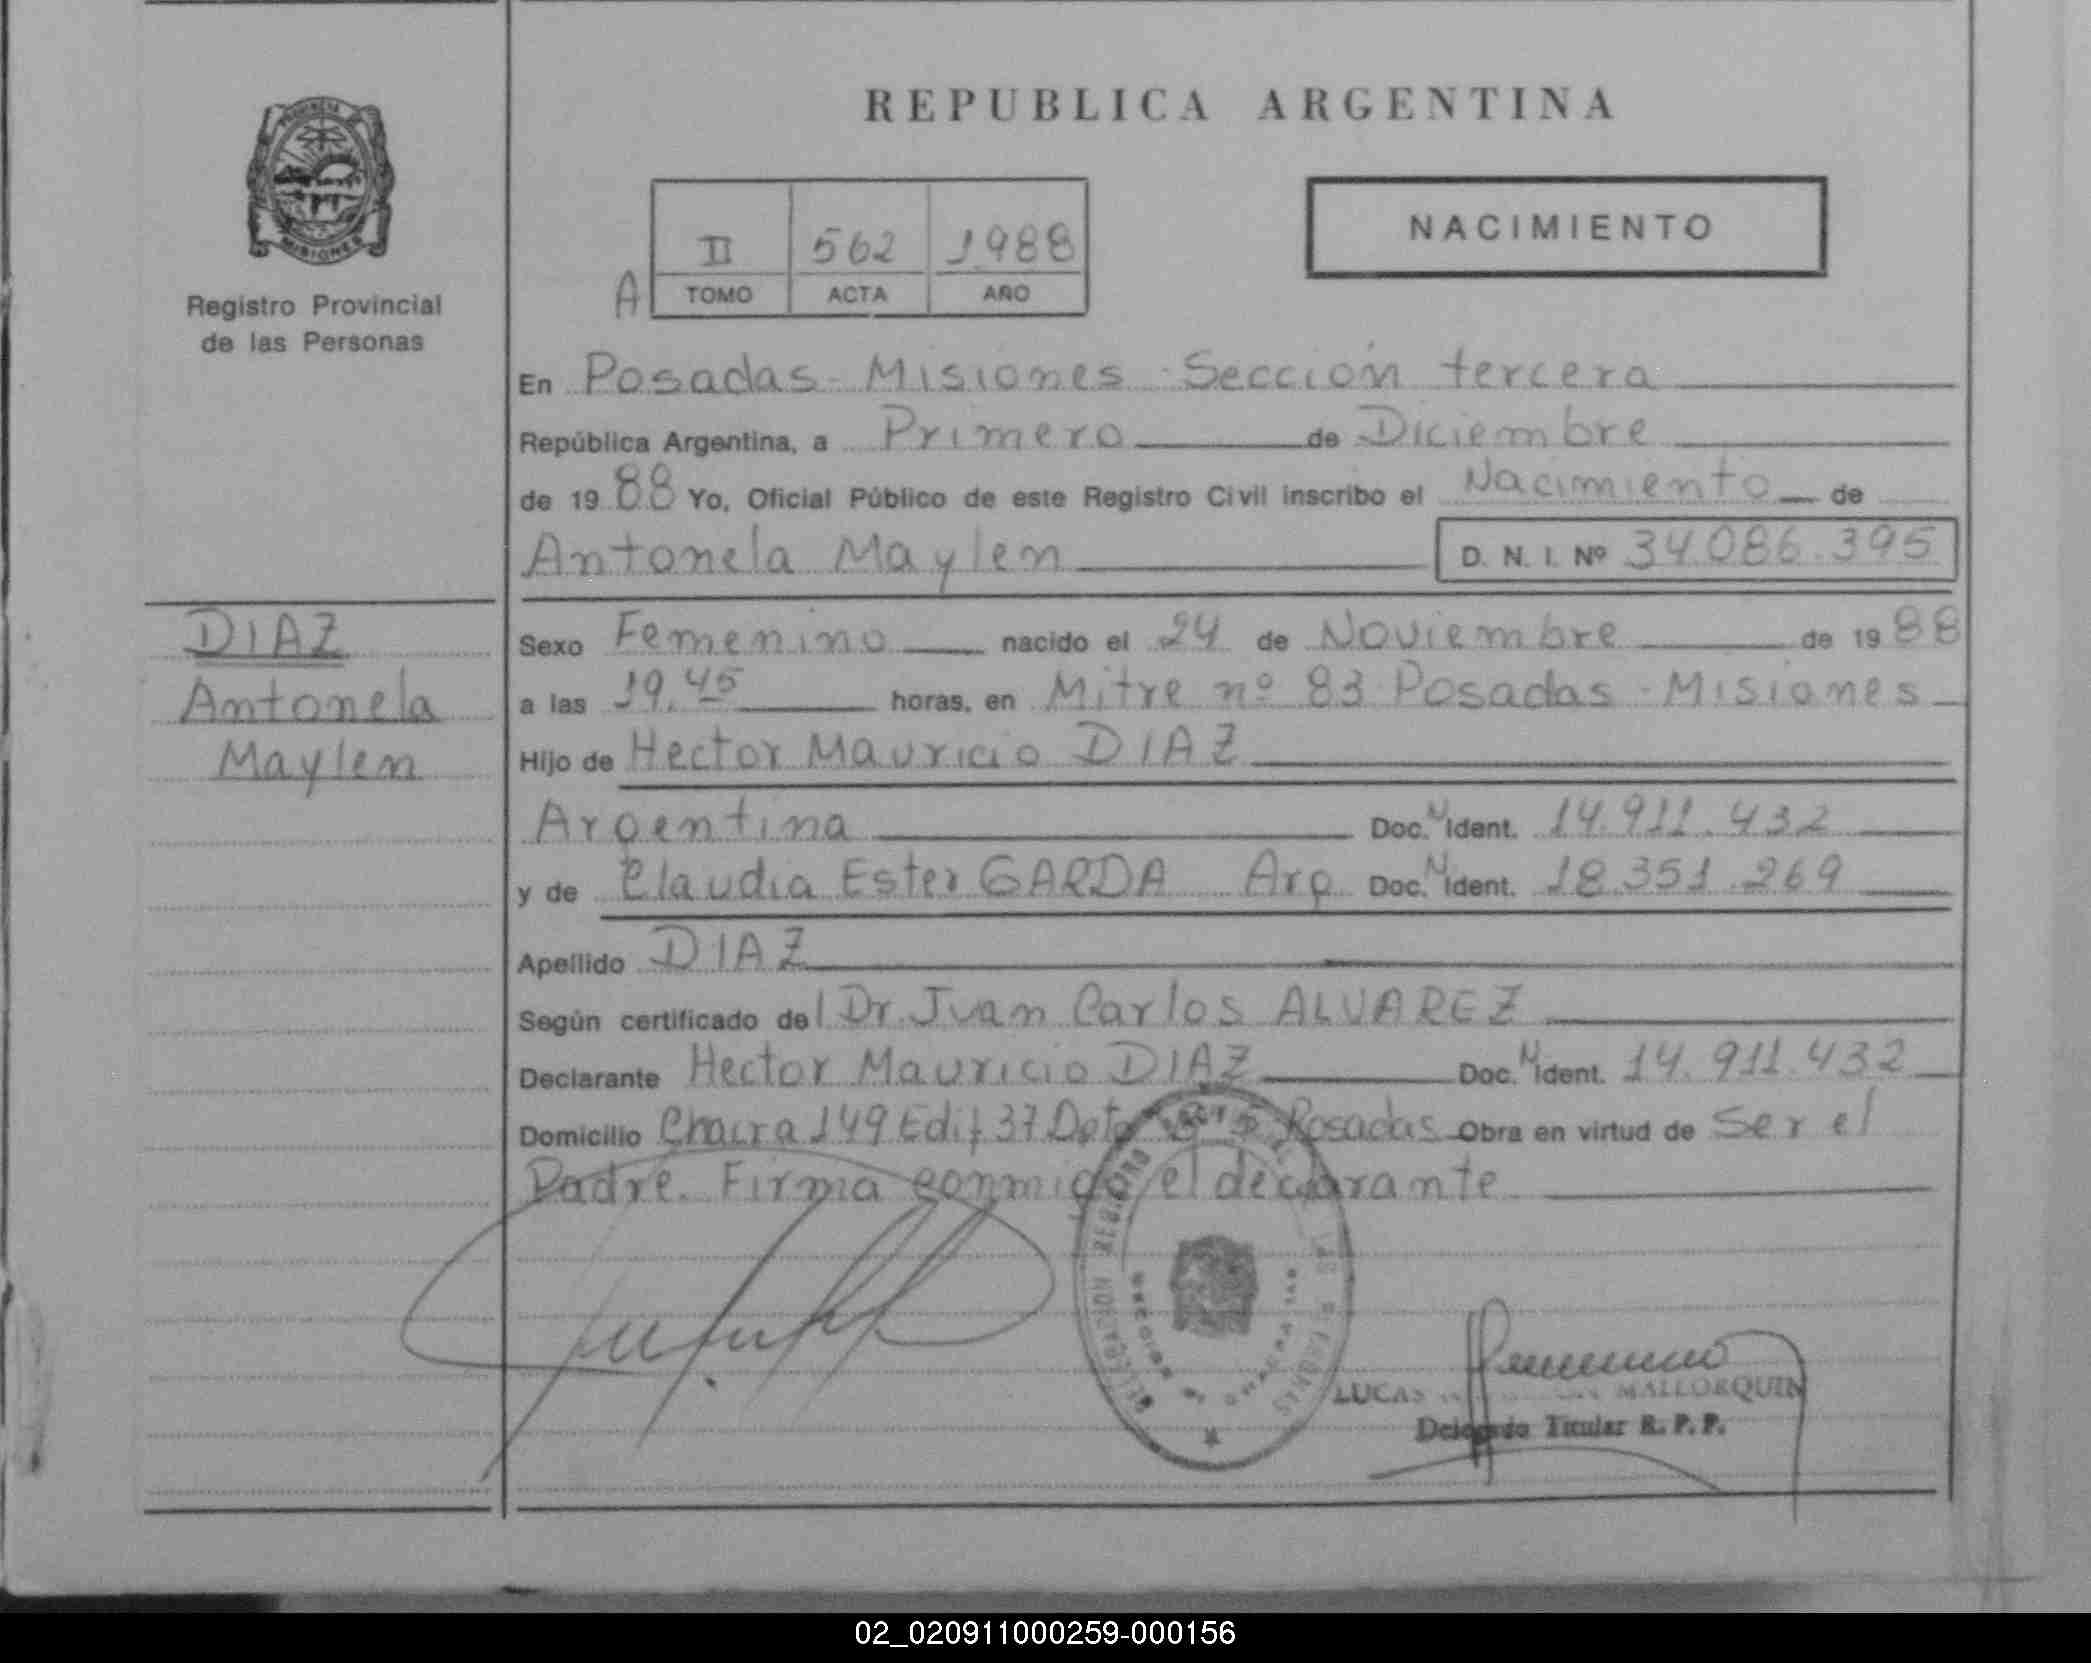 REPUBLICA ARGENTINA
PROVINCIA DE
MISIONES
Registro Provincial
de las Personas
NACIMIENTO
II 562 1988
A TOMO ACTA AÑO
En Posadas - Misiones - Sección tercera
República Argentina, a Primero de Diciembre
de 19 88 Yo, Oficial Público de este Registro Civil inscribo el Nacimiento de
Antonela Maylen D. N. I. Nº 34.086.395
DIAZ
Antonela
Maylen
Sexo Femenino nacido el 24 de Noviembre de 19 88
a las 19.45 horas, en Mitre nº 83 Posadas - Misiones
Hijo de Hector Mauricio DIAZ
Argentina Doc. N Ident. 14.911.432
y de Claudia Ester GARDA Arg Doc. N Ident. 18.351.269
Apellido DIAZ
Según certificado del Dr. Juan Carlos ALVAREZ
Declarante Hector Mauricio DIAZ Doc. N Ident. 14.911.432
Domicilio Chacra 149 Edif 37 Dpto Posadas Obra en virtud de Ser el
Padre. Firma conmigo el declarante
LUCAS MALLORQUIN
Delegado Titular R. P. P.
02_020911000259-000156